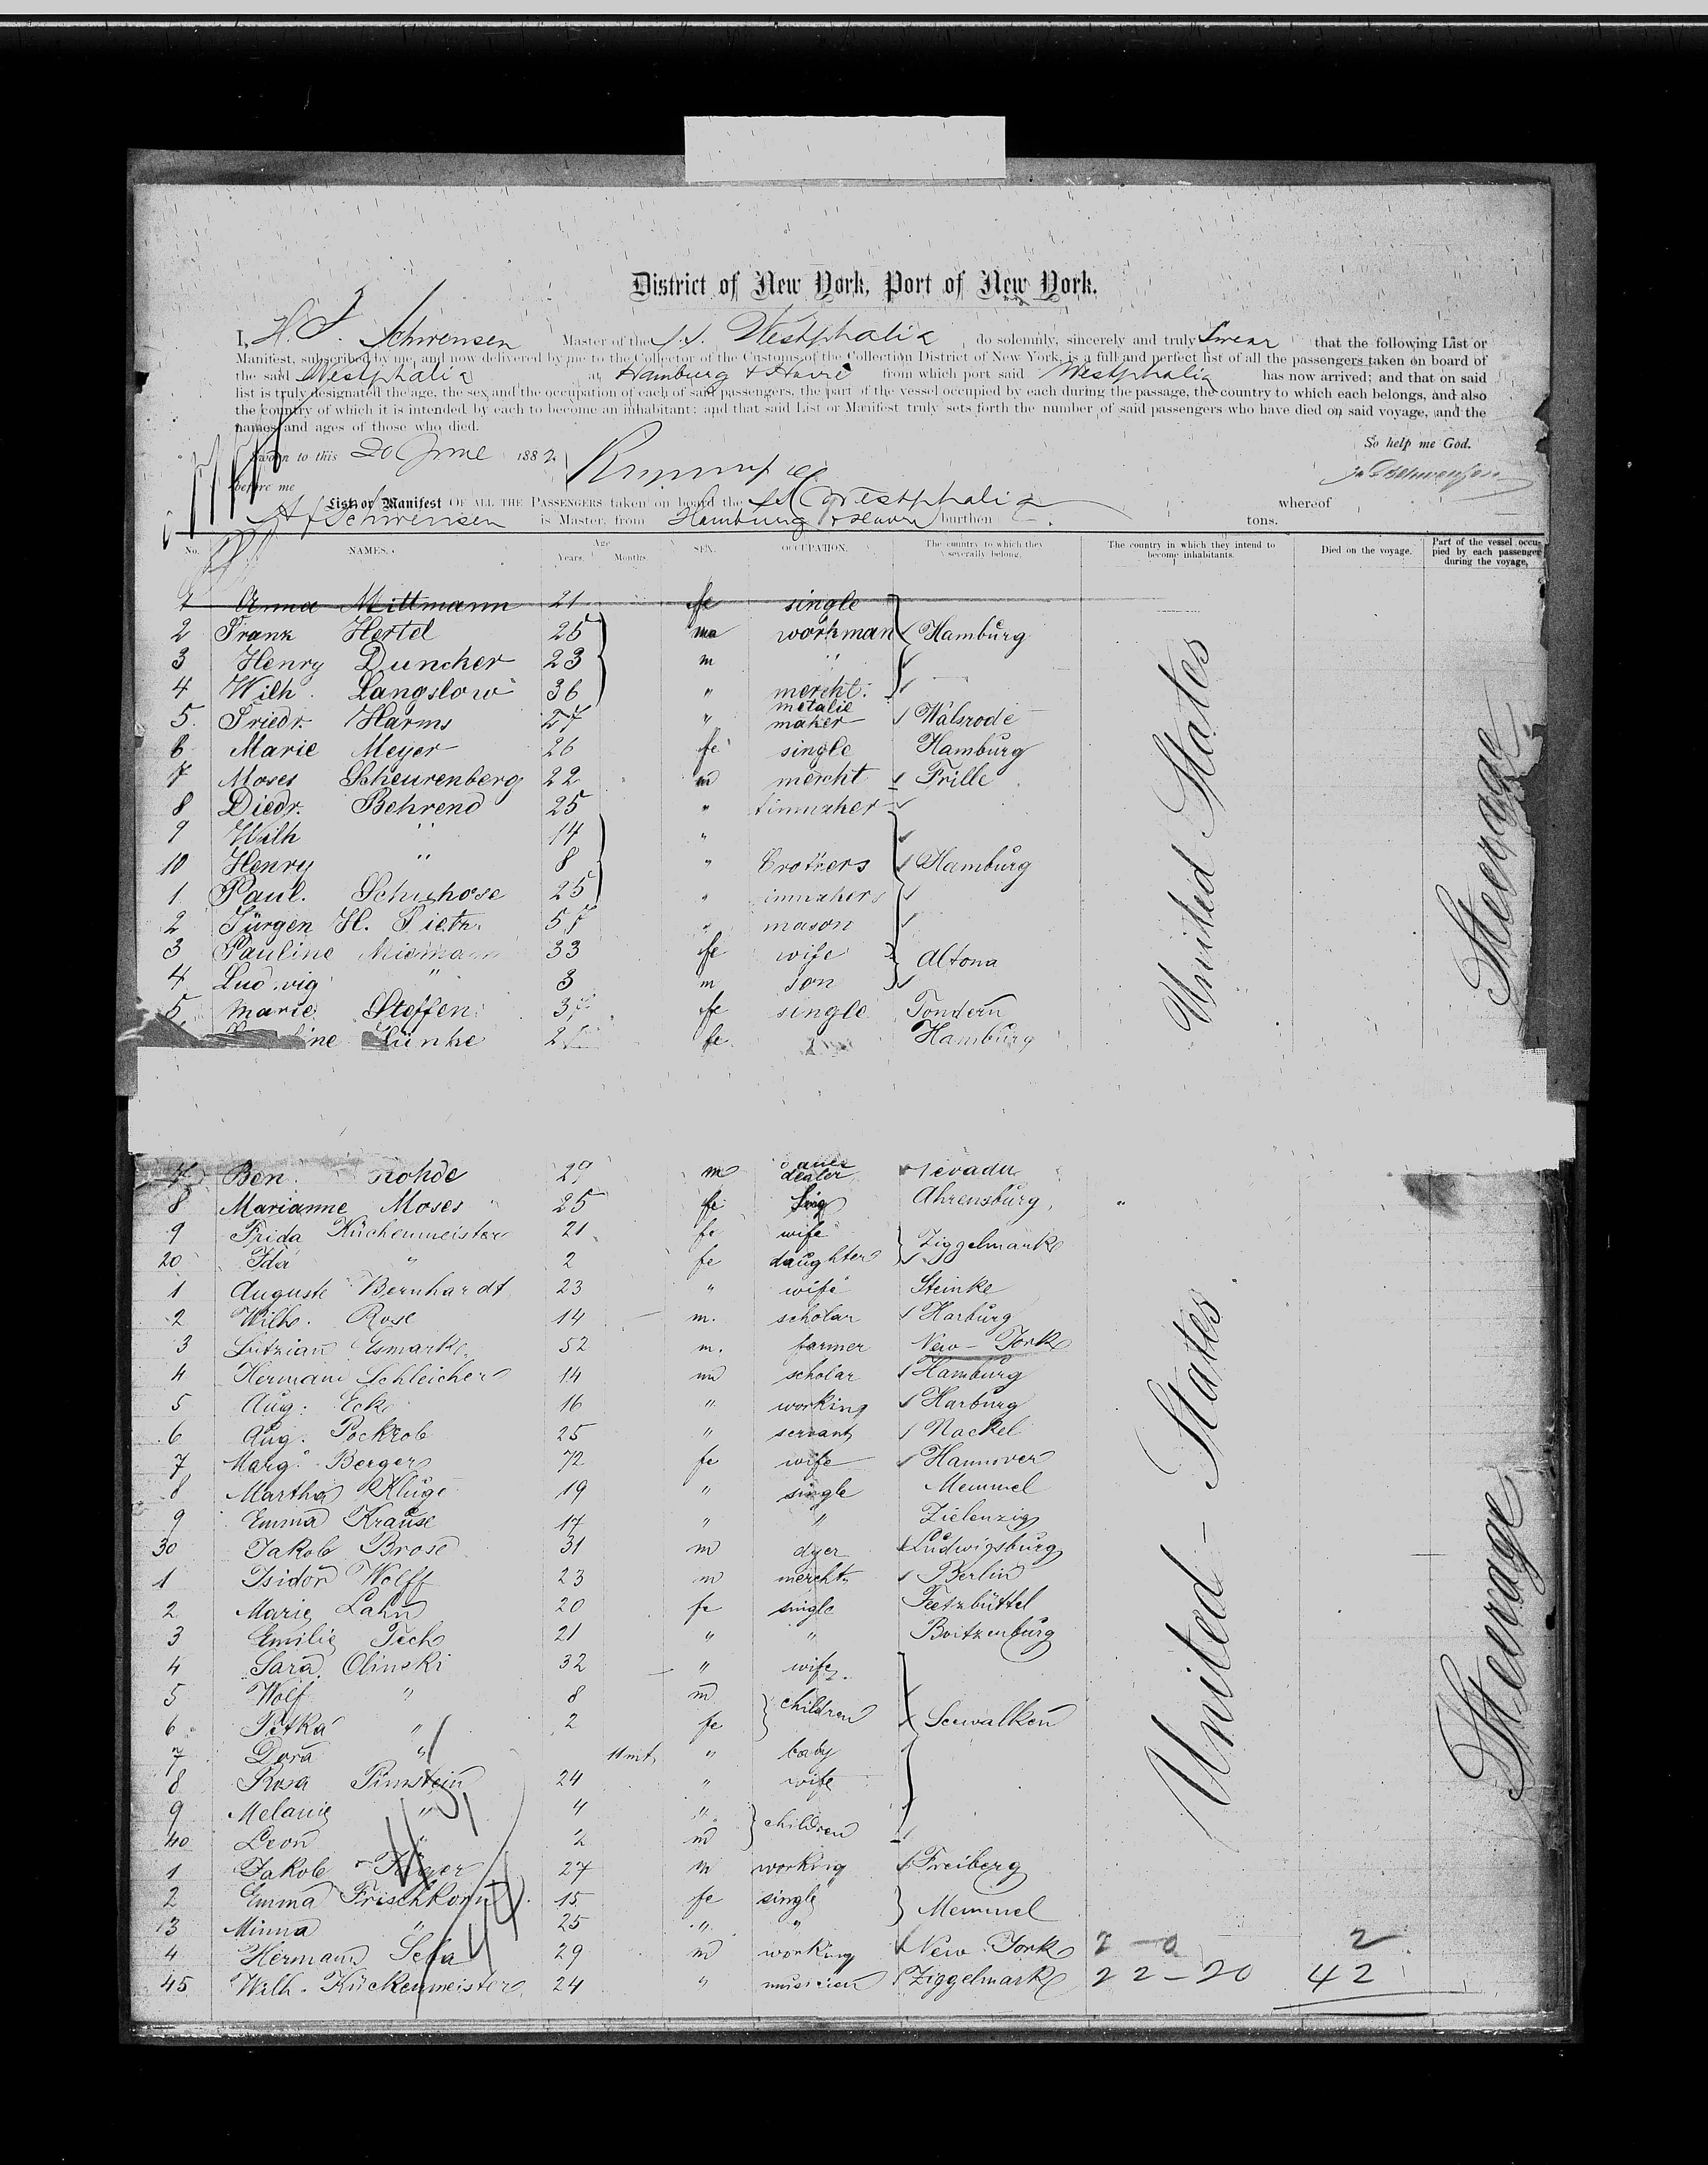 District of New York, Port of New York.
I, H. F. Schwensen Master of the S.S. Westphalia do solemnly, sincerely and truly Swear that the following List or
Manifest, subscribed by me, and now delivered by me to the Collector of the Customs of the Collection District of New York, is a full and perfect list of all the passengers taken on board of
the said Westphalia at Hamburg & Havre from which port said Westphalia has now arrived; and that on said
list is truly designated the age, the sex and the occupation of each of said passengers, the part of the vessel occupied by each during the passage, the country to which each belongs, and also
the country of which it is intended by each to become an inhabitant; and that said List or Manifest truly sets forth the number of said passengers who have died on said voyage, and the
names and ages of those who died.
So help me God.
Sworn to this 20 June 1882
before me
List or Manifest OF ALL THE PASSENGERS taken on board the SS Westphalia whereof
H F Schwensen is Master, from Hamburg & Havre burthen tons.
No. NAMES. Age Years. Months. SEX. OCCUPATION. The country to which they severally belong. The country in which they intend to become inhabitants. Died on the voyage. Part of the vessel occupied by each passenger during the voyage.
1 Anna Mittmann 21 fe single
2 Franz Hertel 25 ma workman Hamburg
3 Henry Duncker 23 m "
4 Wilh. Langslow 36 " mercht.
5. Friedr. Harms 27 " metalic maker Walsrode
6 Marie Meyer 26 fe single Hamburg
7 Moses Scheurenberg 22 m mercht Frille
8 Diedr. Behrend 25 " tinmaker
9 Wilh " 14 "
10 Henry " 8 " brothers Hamburg
1 Paul. 25 "
2 Jürgen H. " mason
3 Pauline 33 fe wife Altona
4 Ludwig " 3 m son
5 Marie Steffen fe single Tondern
Lünke fe Hamburg
United States
Steerage
7 Ben. Rohde 29 m dealer Nevada
8 Marianne Moses 25 fe Sing Ahrensburg "
9 Frida Küchenmeister 21 fe wife Ziggelmark
20 Ida " 2 fe daughter
1 Auguste Bernhardt 23 " wife Steinke
2 Wilh. Rose 14 m. scholar Harburg
3 Esmark 52 m. farmer New-York
4 Hermann Schleicher 14 m scholar Hamburg
5 Aug. Eck 16 " working Harburg
6 Aug. Pockrob 25 " servant Nackel
7 Marg. Berger 72 fe wife Hannover
8 Martha Kluge 19 " single Memmel
9 Emma Krause 17 " " Zielenzig
30 Jakob Brose 31 m dyer Ludwigsburg
1 Isidor Wolff 23 m mercht. Berlin
2 Marie Lahn 20 fe single Fetzbüttel
3 Emilie Tech 21 " " Boitzenburg
4 Sara Olinski 32 " wife
5 Wolf " 8 m children
6 Petka " 2 fe Seewalken
7 Dora " 11 mt. " baby
8 Rosa 24 " wife
9 Melanie " 4 " children
40 Leon " 2 m
1 Jakob 27 m working Freiberg
2 Emma Frischkorn 15 fe single Memmel
3 Minna " 25 " "
4 Hermann 29 m working New York 2 - 0 2
45 Wilh. Küchenmeister 24 " musician Ziggelmark 22-20 42
United - States
Steerage